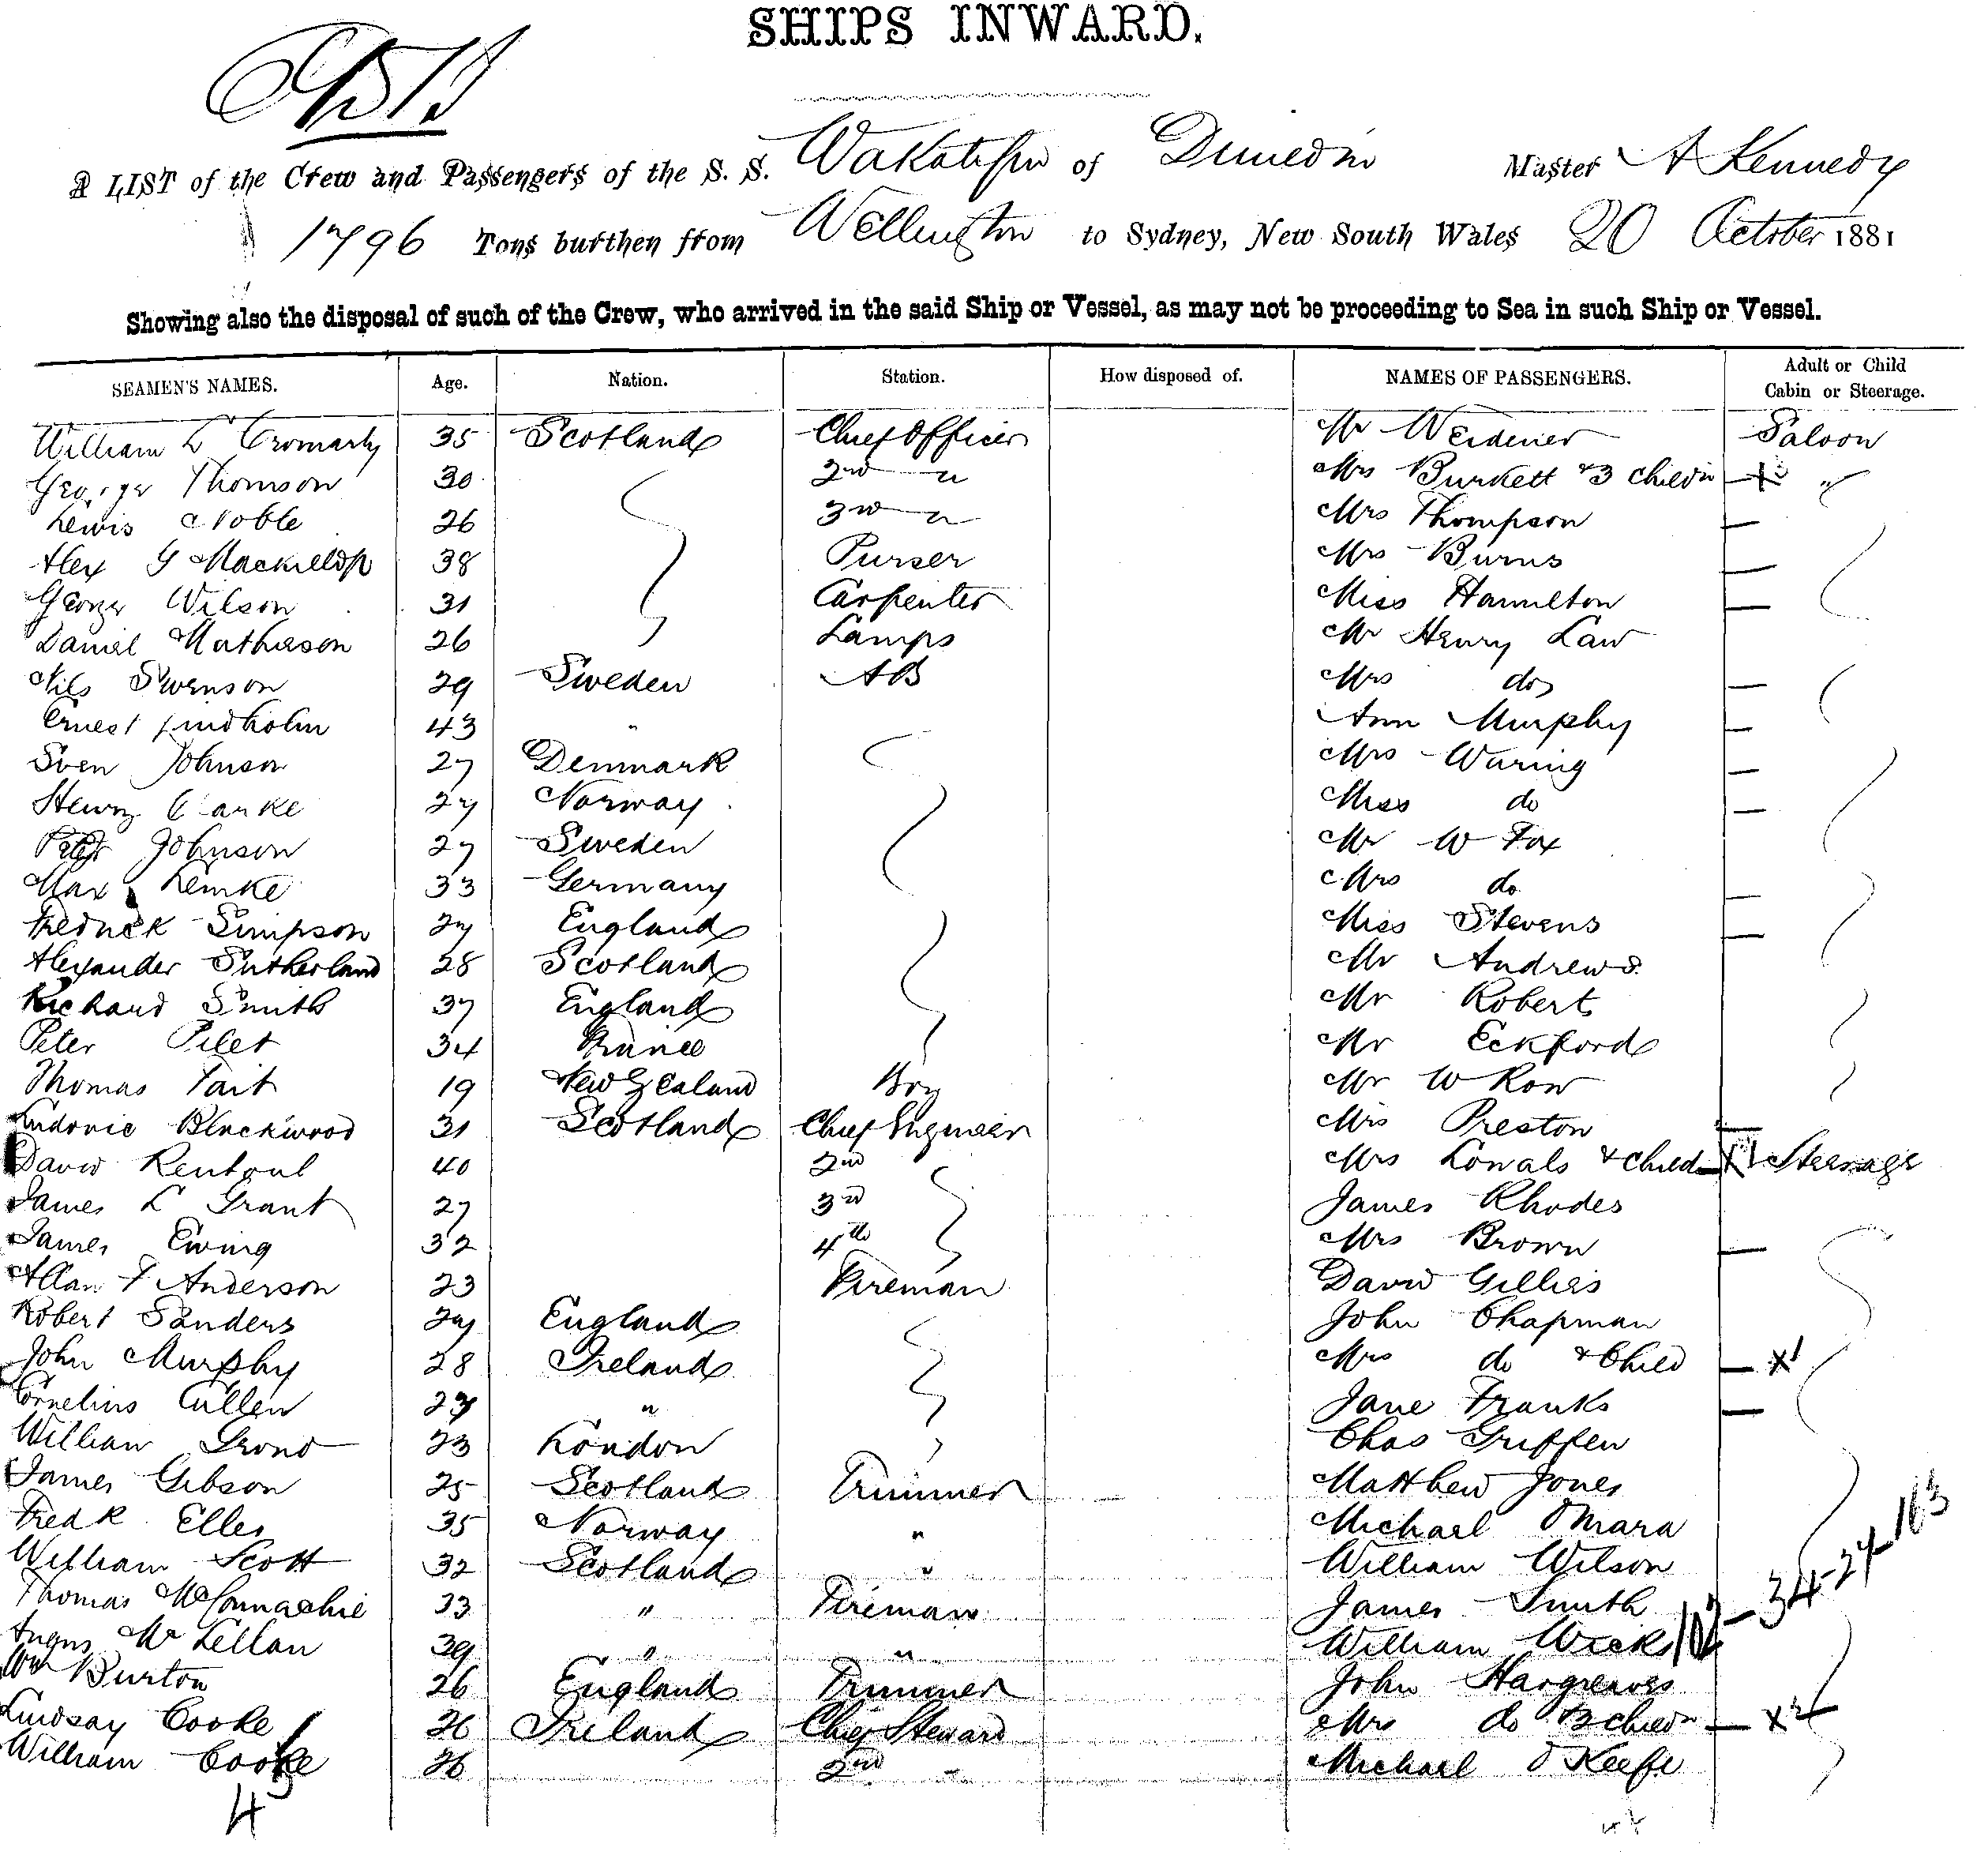 SHIPS INWARD.
A LIST of the Crew and Passengers of the S. S. Wakatipu of Dunedin Master A Kennedy
1796 Tons burthen from Wellington to Sydney, New South Wales 20 October 1881
Showing also the disposal of such of the Crew, who arrived in the said Ship or Vessel, as may not be proceeding to Sea in such Ship or Vessel.
SEAMEN'S NAMES. Age. Nation. Station. How disposed of. NAMES OF PASSENGERS. Adult or Child Cabin or Steerage.
William L Cromarty 35 Scotland Chief Officer Mr Weidener Saloon
George Thomson 30 2nd " Mrs Burkett & 3 Childn "
Lewis Noble 26 3rd " Mrs Thompson
Alex G Mackillop 38 Purser Mrs Burns
George Wilson 31 Carpenter Miss Hamilton
Daniel Mathieson 26 Lamps Mr Henry Law
Nils Swenson 29 Sweden AB Mrs do
Ernest Lindholm 43 " Ann Murphy
Sven Johnson 27 Denmark Mrs Waring
Henry Clarke 27 Norway Miss do
Peter Johnson 27 Sweden Mr W Fox
Max Lemke 33 Germany Mrs do
Fredrick Simpson 27 England Miss Stevens
Alexander Sutherland 28 Scotland Mr Andrews
Richard Smith 37 England Mr Robert
Peter Pilet 34 France Mr Eckford
Thomas Tait 19 New Zealand Boy Mr W Row
Ludovic Blackwood 31 Scotland Chief Engineer Mrs Preston
David Rentoul 40 2nd Mrs Lowals & Child Steerage
James L Grant 27 3rd James Rhodes
James Ewing 32 4th Mrs Brown
Allan F Anderson 23 Fireman David Gillies
Robert Sanders 27 England John Chapman
John Murphy 28 Ireland Mrs do & Child x1
Cornelius Cullen 27 " Jane Franks
William Grono 23 London Chas Griffen
James Gibson 25 Scotland Trimmer Matthew Jones
Fredk Elles 35 Norway " Michael OMara
William Scott 32 Scotland " William Wilson
Thomas McConnachie 33 " Fireman James Smith
Angus McLellan 39 " " William Wicks
Wm Burton 26 England Trimmer John Hargreaves
Lindsay Cooke 26 Ireland Chief Steward Mrs do & 3 childn x3
William Cooke 26 2nd " Michael O Keefe